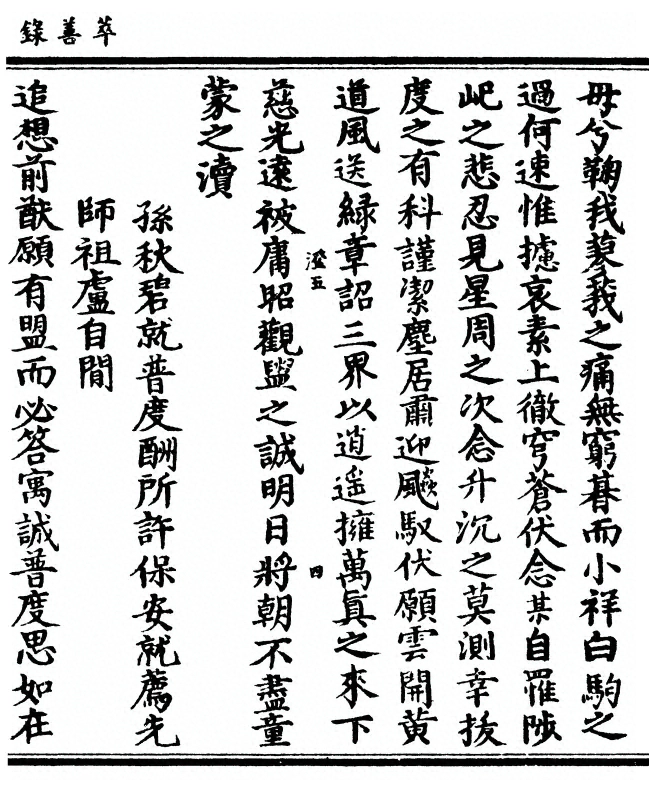 萃善錄
母兮鞠我蓼莪之痛無窮朞而小祥白駒之
過何速惟攄哀素上徹穹蒼伏念某自罹陟
屺之悲忍見星周之次念升沉之莫測幸拔
度之有科謹潔塵居肅迎飈馭伏願雲開黄
道風送綠章詔三界以逍遥擁萬眞之來下
慈光遠被庸昭觀盥之誠明日將朝不盡童
蒙之瀆
孫秋碧就普度酬所許保安就薦先
師祖盧自閒
追想前猷願有盟而必答寓誠普度思如在
澄五
四